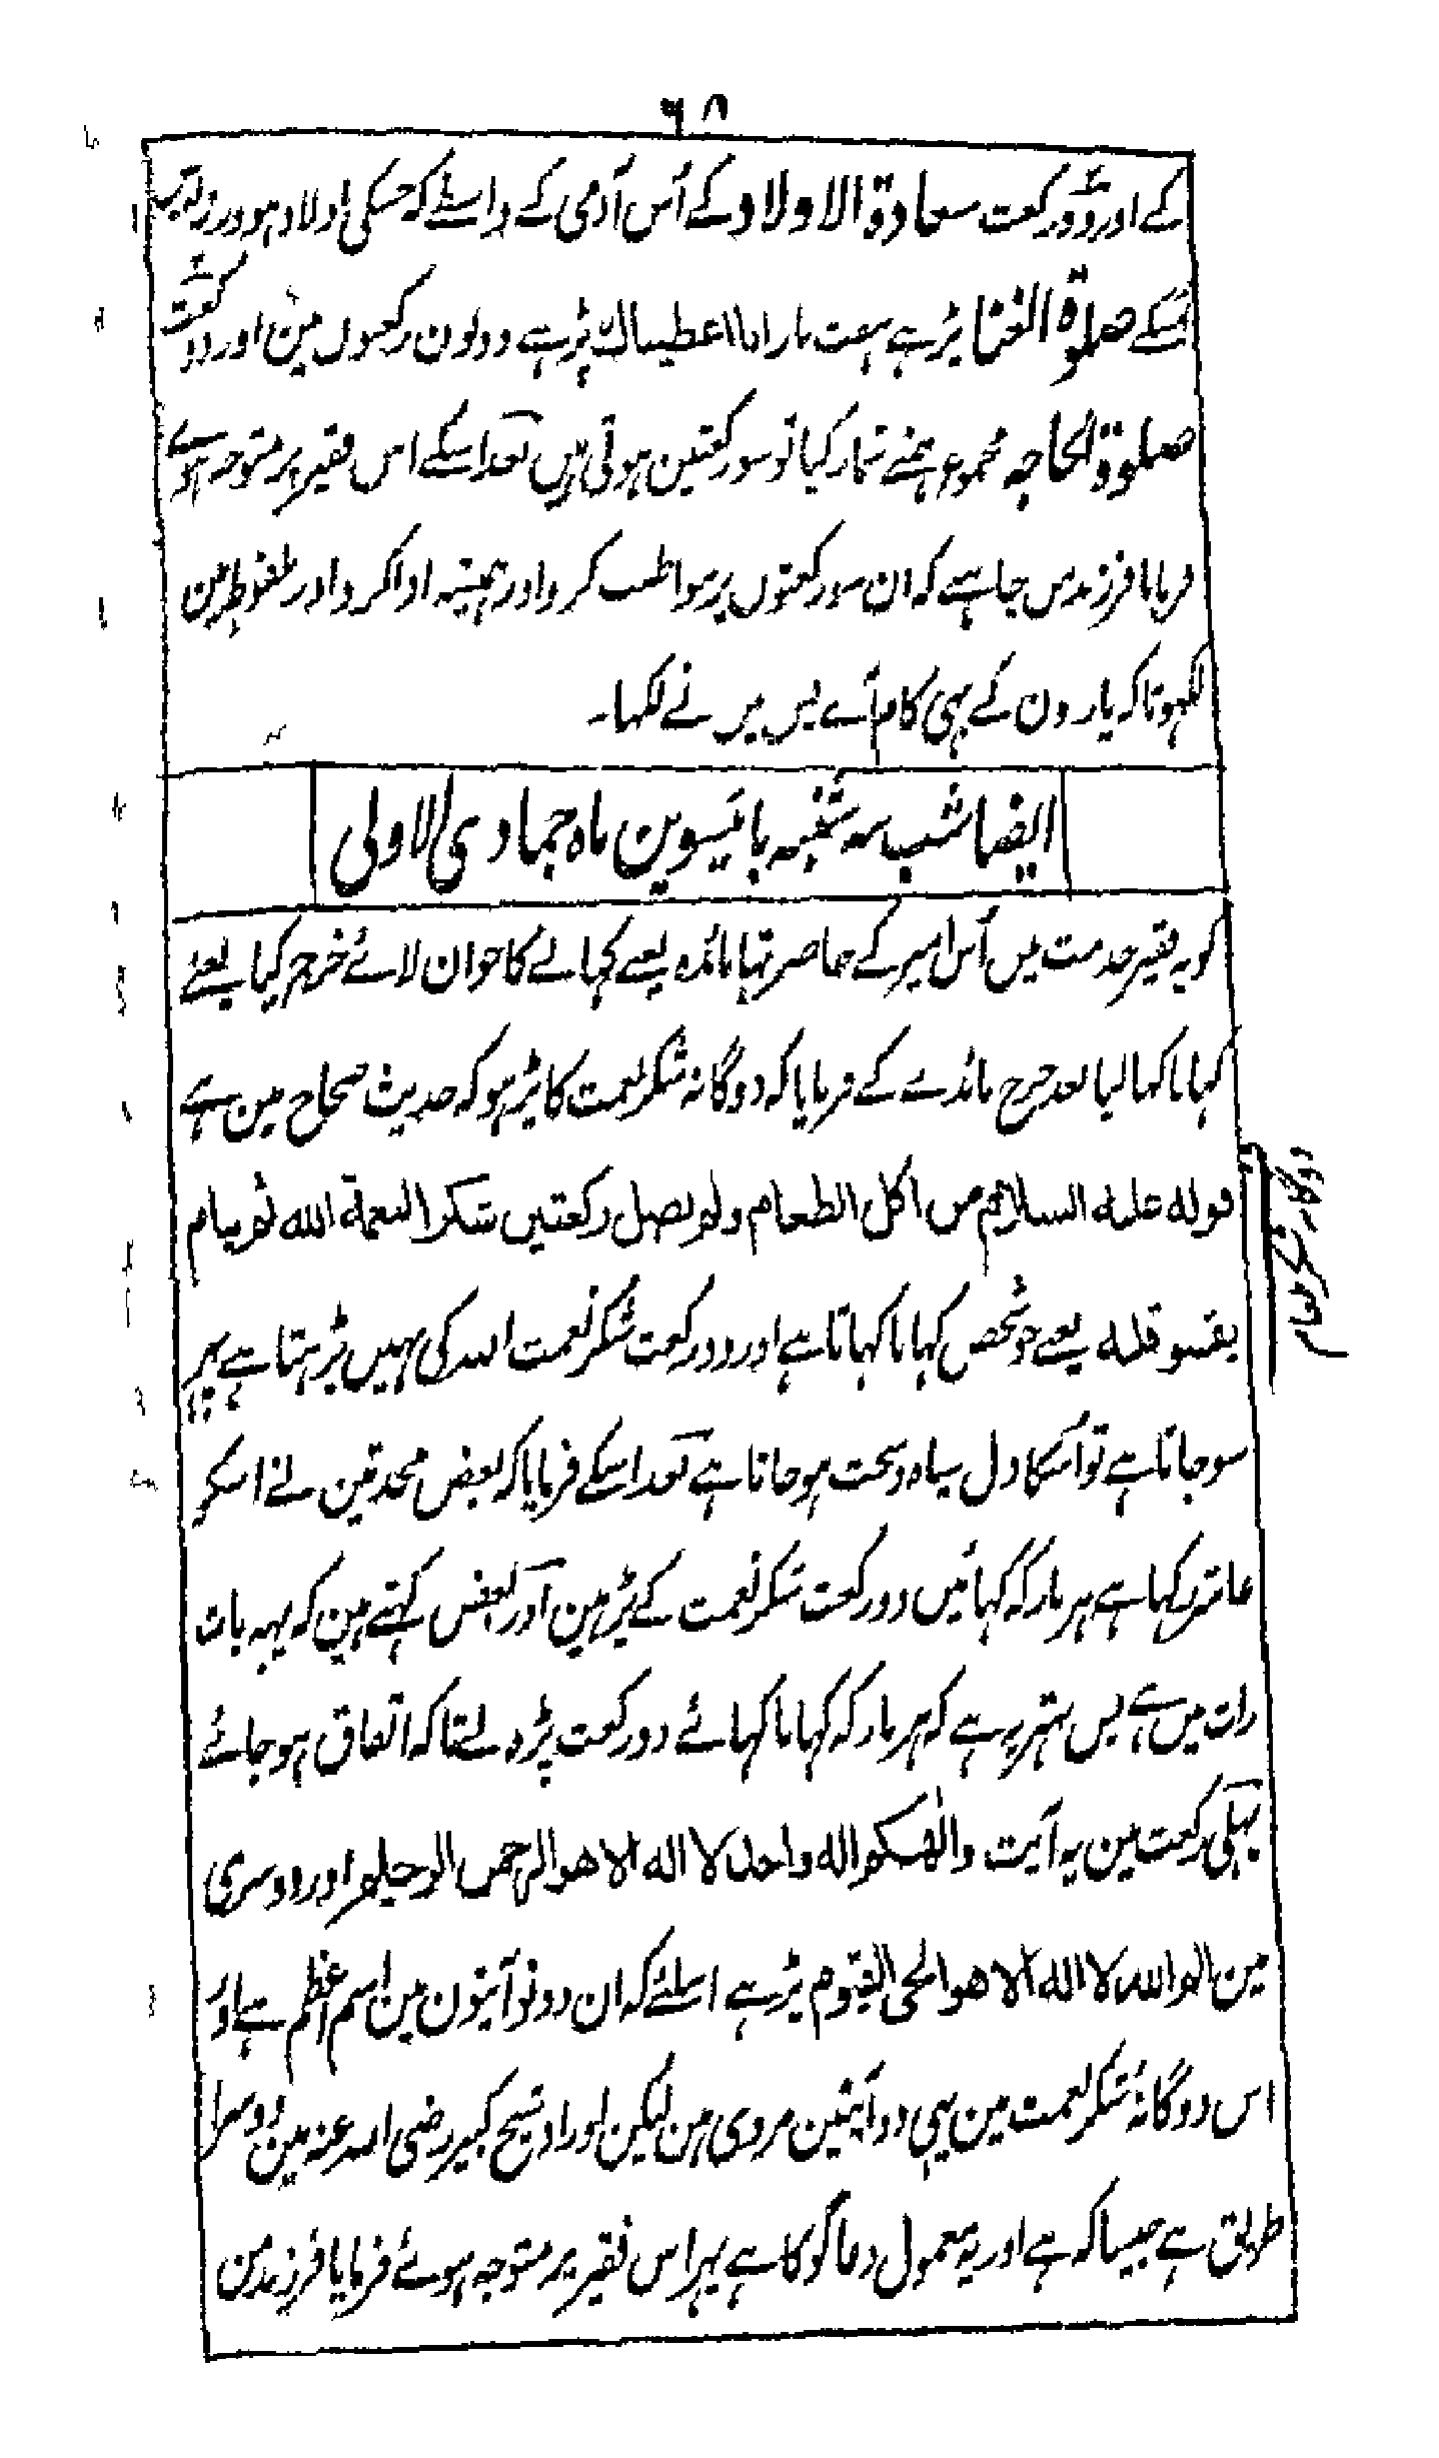 ۶۸
کے اور دو رکعت سعادۃ الاولاد کے اُس آدمی کے واسطے کہ جسکی اولاد ہو ورنہ
اسکے صلوۃ الغنا پڑہے ہفت بار انا اعطیناک پڑہے دونون رکعتوں مین اور دو رکعت
صلوۃ الحاجہ مجموع ہمنے شمار کیا تو سو رکعتین ہوتی ہیں بعد اسکے اس فقیر پر متوجہ ہوے
فرمایا فرزند من چاہیے کہ ان سو رکعتوں پر مواظبت کرو اور ہمیشہ ادا کرو اور ملفوظ مین
لکہو تاکہ یارون کے بہی کام آے پس میں نے لکہا۔
ایضا شب سہ شنبہ بائیسوین ماہ جمادی الاولی
کو یہ فقیر خدمت میں اُس امیر کے حاضر تہا مائدہ یعنے کہانے کا خوان لائے خرچ کیا یعنے
کہانا کہا لیا بعد خرچ مائدے کے فرمایا کہ دوگانہ شکر نعمت کا پڑہو کہ حدیث صحاح مین ہے
قوله علیه السلام من اکل الطعام ولم یصل رکعتین شکرا لنعمة الله ثم ینام
یقسو قلبه یعنے جو شخص کہانا کہاتا ہے اور دو رکعت شکر نعمت اللہ کی نہیں پڑہتا ہے پہر
سو جاتا ہے تو اُسکا دل سیاہ و سخت ہو جاتا ہے بعد اسکے فرمایا کہ بعض محدثین نے اسکو
عام رکہا ہے ہر بار کہ کہائیں دو رکعت شکر نعمت کے پڑہین اور بعض کہتے ہین کہ یہہ بات
رات میں ہے پس بہتر یہ ہے کہ ہر بار کہ کہانا کہائے دو رکعت پڑہ لے تاکہ اتفاق ہو جائے
پہلی رکعت مین یہ آیت والٰھکم اله واحد لا اله الا هو الرحمن الرحیم اور دوسری
مین الم الله لا اله الا هو الحی القیوم پڑہے اسلئے کہ ان دونو آیتون مین اسم اعظم ہے اور
اس دوگانہ شکر نعمت مین یہی دو آیتین مروی ہین لیکن اوراد شیخ کبیر رضی اللہ عنہ مین دوسرا
طریق ہے جیسا کہ ہے اور یہ معمول دعا گو کا ہے پہر اس فقیر پر متوجہ ہوئے فرمایا فرزند من